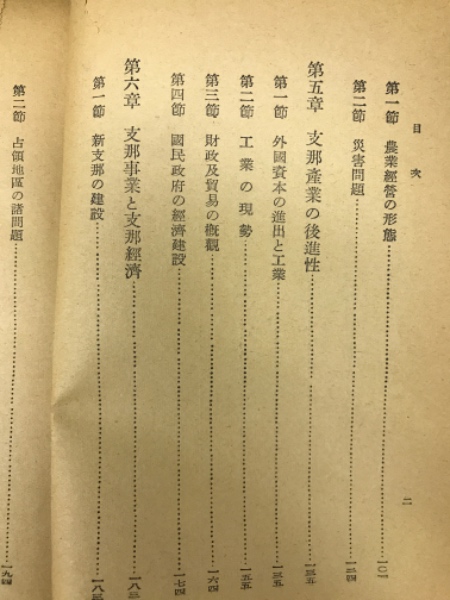 目次
二
第一節　農業經營の形態…一〇一
第二節　災害問題…一二四
第五章　支那產業の後進性…一三五
第一節　外國資本の進出と工業…一三五
第二節　工業の現勢…一五五
第三節　財政及貿易の槪觀…一六四
第四節　國民政府の經濟建設…一七四
第六章　支那事業と支那經濟…一八三
第一節　新支那の建設…一八三
第二節　占領地區の諸問題…一九四